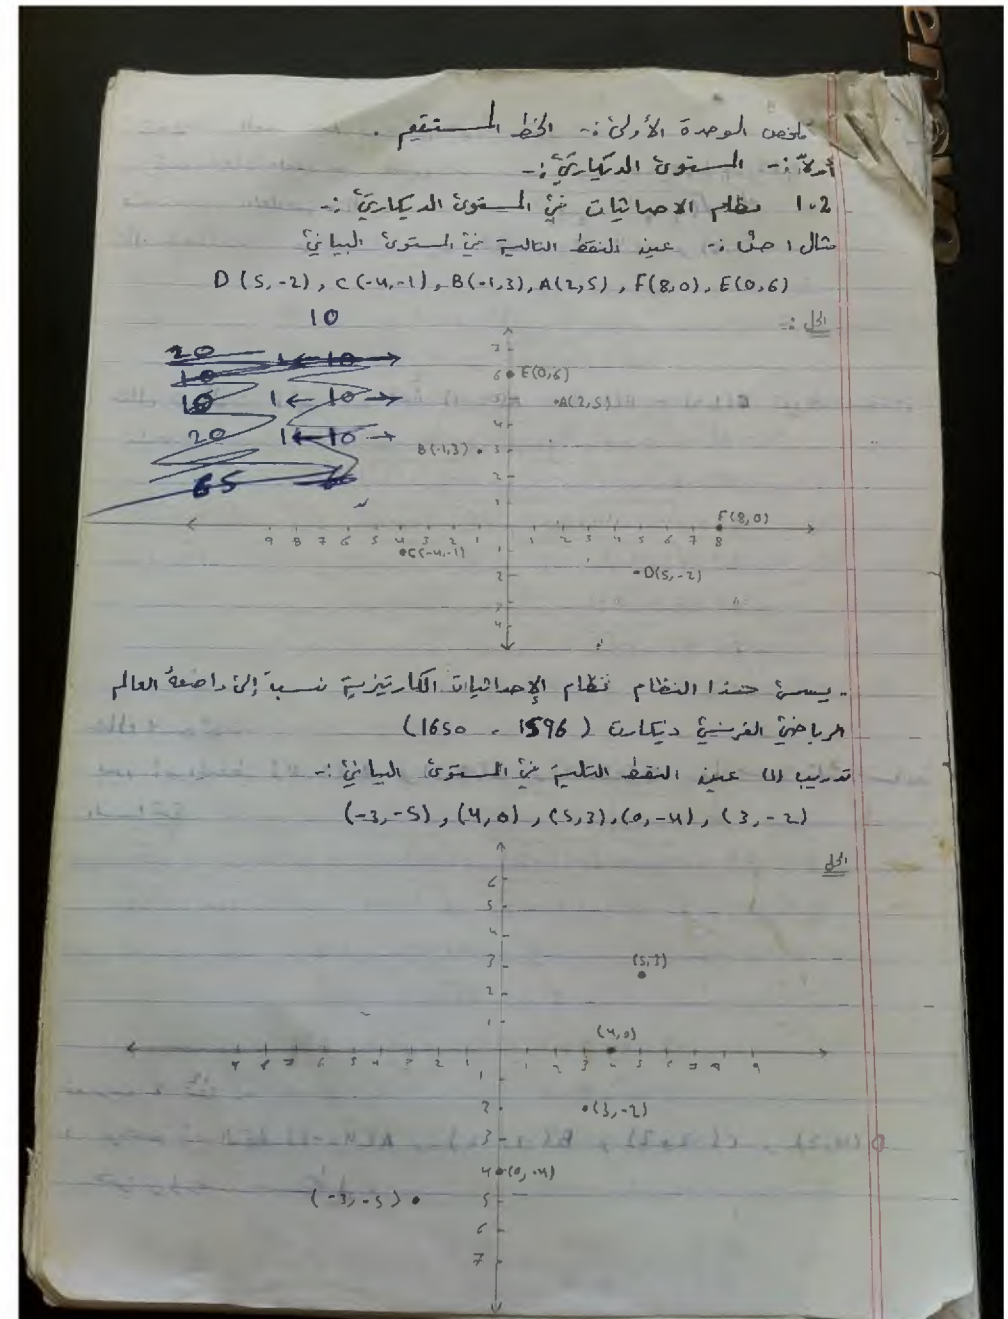 ملخص الوحدة الأولى :- الخط المستقيم .
أولاً :- المستوى الديكارتي :-
1.2 نظام الاحداثيات في المستوى الديكارتي :-
مثال 1 ص :- عين النقط التالية في المستوى البياني
D (5,-2) , C(-4,-1) , B(-1,3) , A(2,5) , F(8,0) , E(0,6)
10
الحل :-
20
1 ← 10 →
10
10 1 ← 10 →
20 1 ← 10 →
65
7
6 E(0,6)
5 A(2,5)
4
B(-1,3) 3
2
1
F(8,0)
9 8 7 6 5 4 3 2 1 1 2 3 4 5 6 7 8
C(-4,-1) 1
2 D(5,-2)
3
4
- يسمى هذا النظام نظام الإحداثيات الكارتيزية نسبة إلى واضعه العالم
الرياضي الفرنسي ديكارت ( 1596 - 1650)
تدريب (1) عين النقط التالية في المستوى البياني :-
(-3,-5) , (4,0) , (5,3) , (0,-4) , (3,-2)
الحل
6
5
4
3 (5,3)
2
1
(4,0)
9 8 7 6 5 4 3 2 1 1 2 3 4 5 6 7 8 9
1
2 (3,-2)
3
4 (0,-4)
(-3,-5) 5
6
7